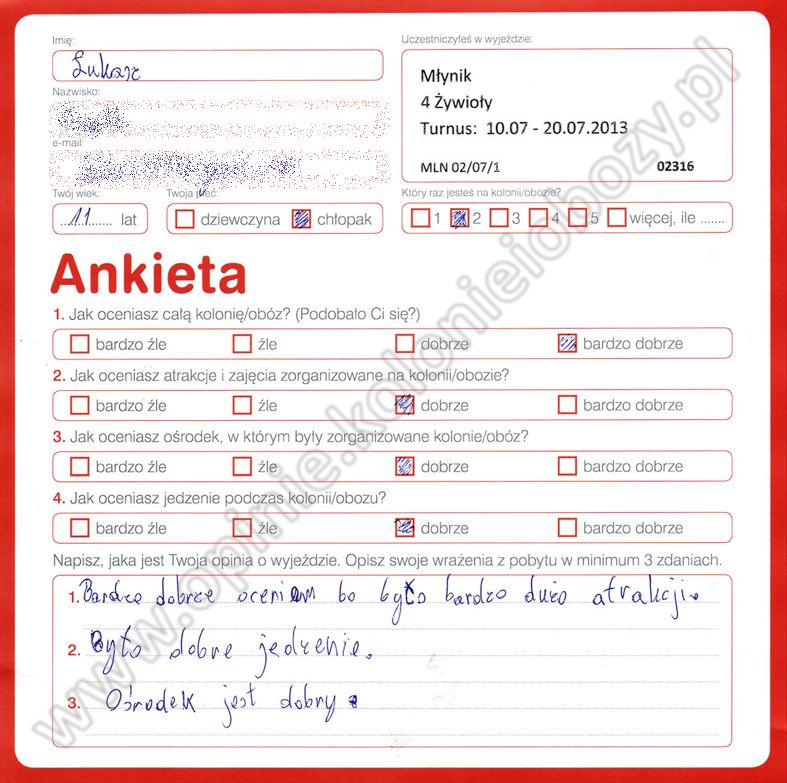 Imię:
Łukasz
Nazwisko:
e-mail:
Twój wiek:
11 lat
Twoja płeć:
dziewczyna chłopak
Uczestniczyłeś w wyjeździe:
Młynik
4 Żywioły
Turnus: 10.07 - 20.07.2013
MLN 02/07/1 02316
Który raz jesteś na kolonii/obozie?
1 2 3 4 5 więcej, ile .......
Ankieta
1. Jak oceniasz całą kolonię/obóz? (Podobało Ci się?)
bardzo źle źle dobrze bardzo dobrze
2. Jak oceniasz atrakcje i zajęcia zorganizowane na kolonii/obozie?
bardzo źle źle dobrze bardzo dobrze
3. Jak oceniasz ośrodek, w którym były zorganizowane kolonie/obóz?
bardzo źle źle dobrze bardzo dobrze
4. Jak oceniasz jedzenie podczas kolonii/obozu?
bardzo źle źle dobrze bardzo dobrze
Napisz, jaka jest Twoja opinia o wyjeździe. Opisz swoje wrażenia z pobytu w minimum 3 zdaniach.
1. Bardzo dobrze oceniam bo było bardzo dużo atrakcji.
2. Było dobre jedzenie.
3. Ośrodek jest dobry.
www.opinie.kolonieiobozy.pl